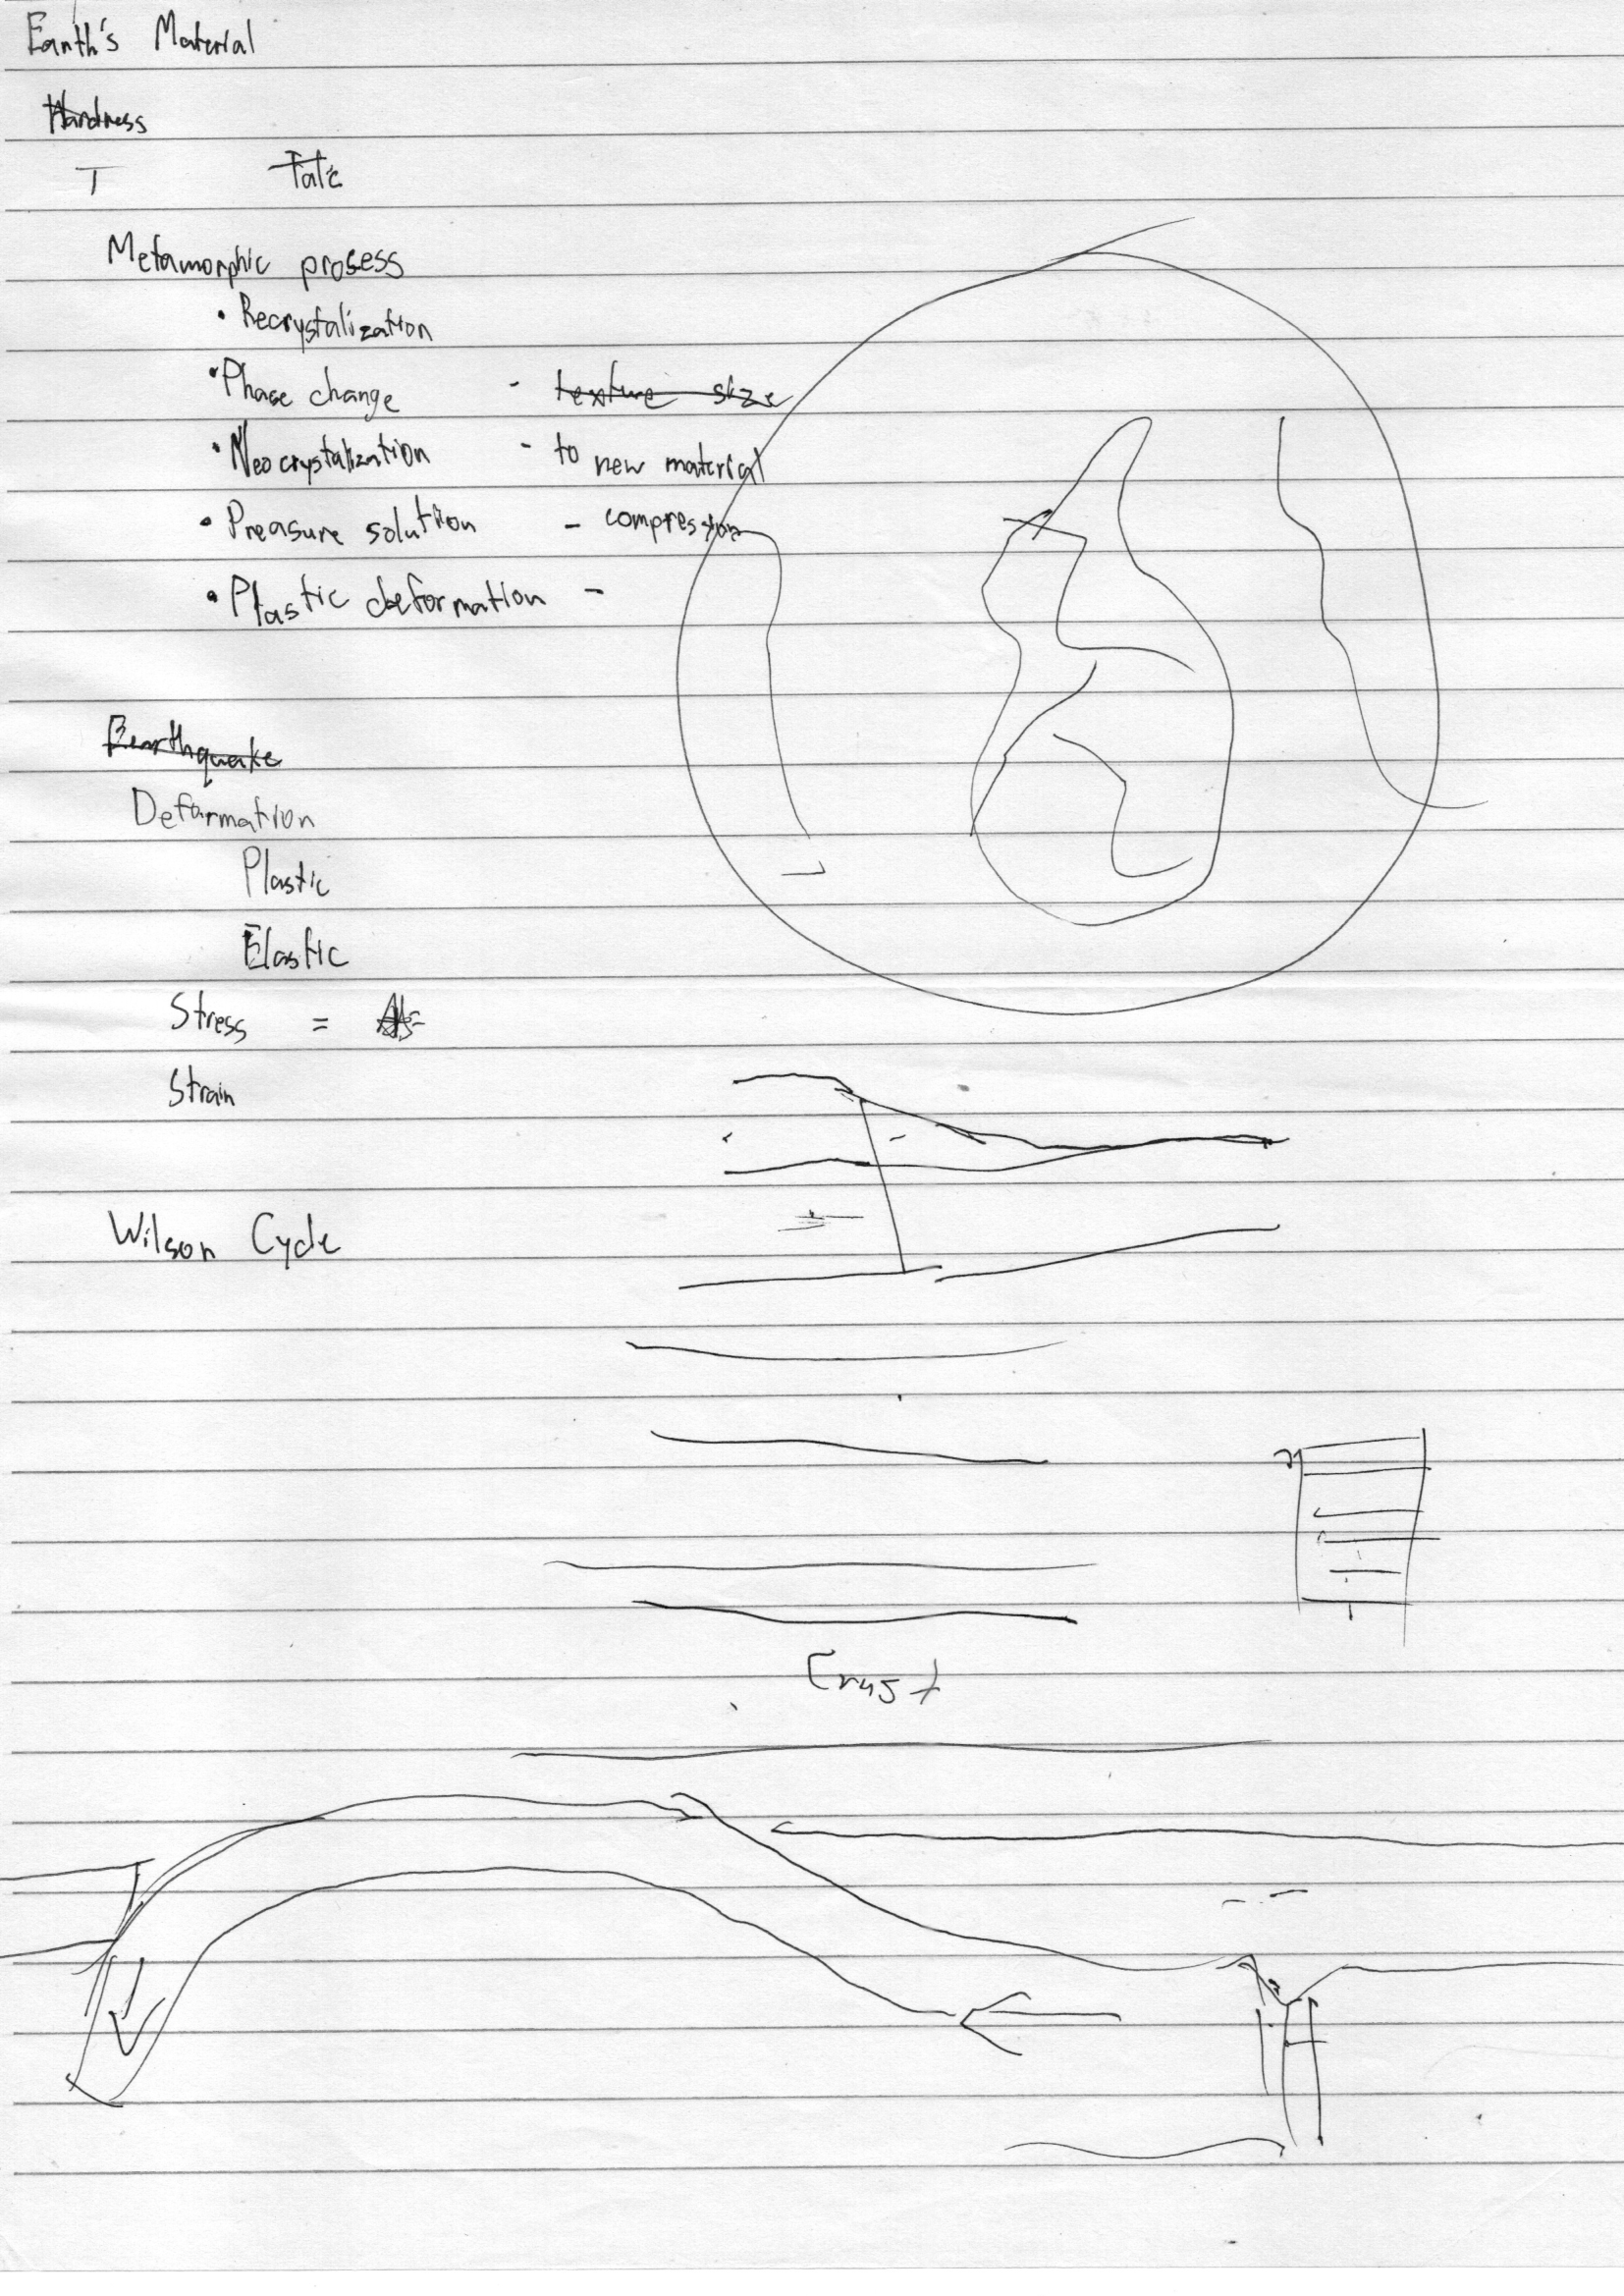 Earth's Material
Hardness
T Talc
Metamorphic process
• Recrystalization
• Phase change - texture size
• Neocrystalization - to new material
• Preasure solution - compression
• Plastic deformation -
Earthquake
Deformation
Plastic
Elastic
Stress =
Strain
Wilson Cycle
Crust